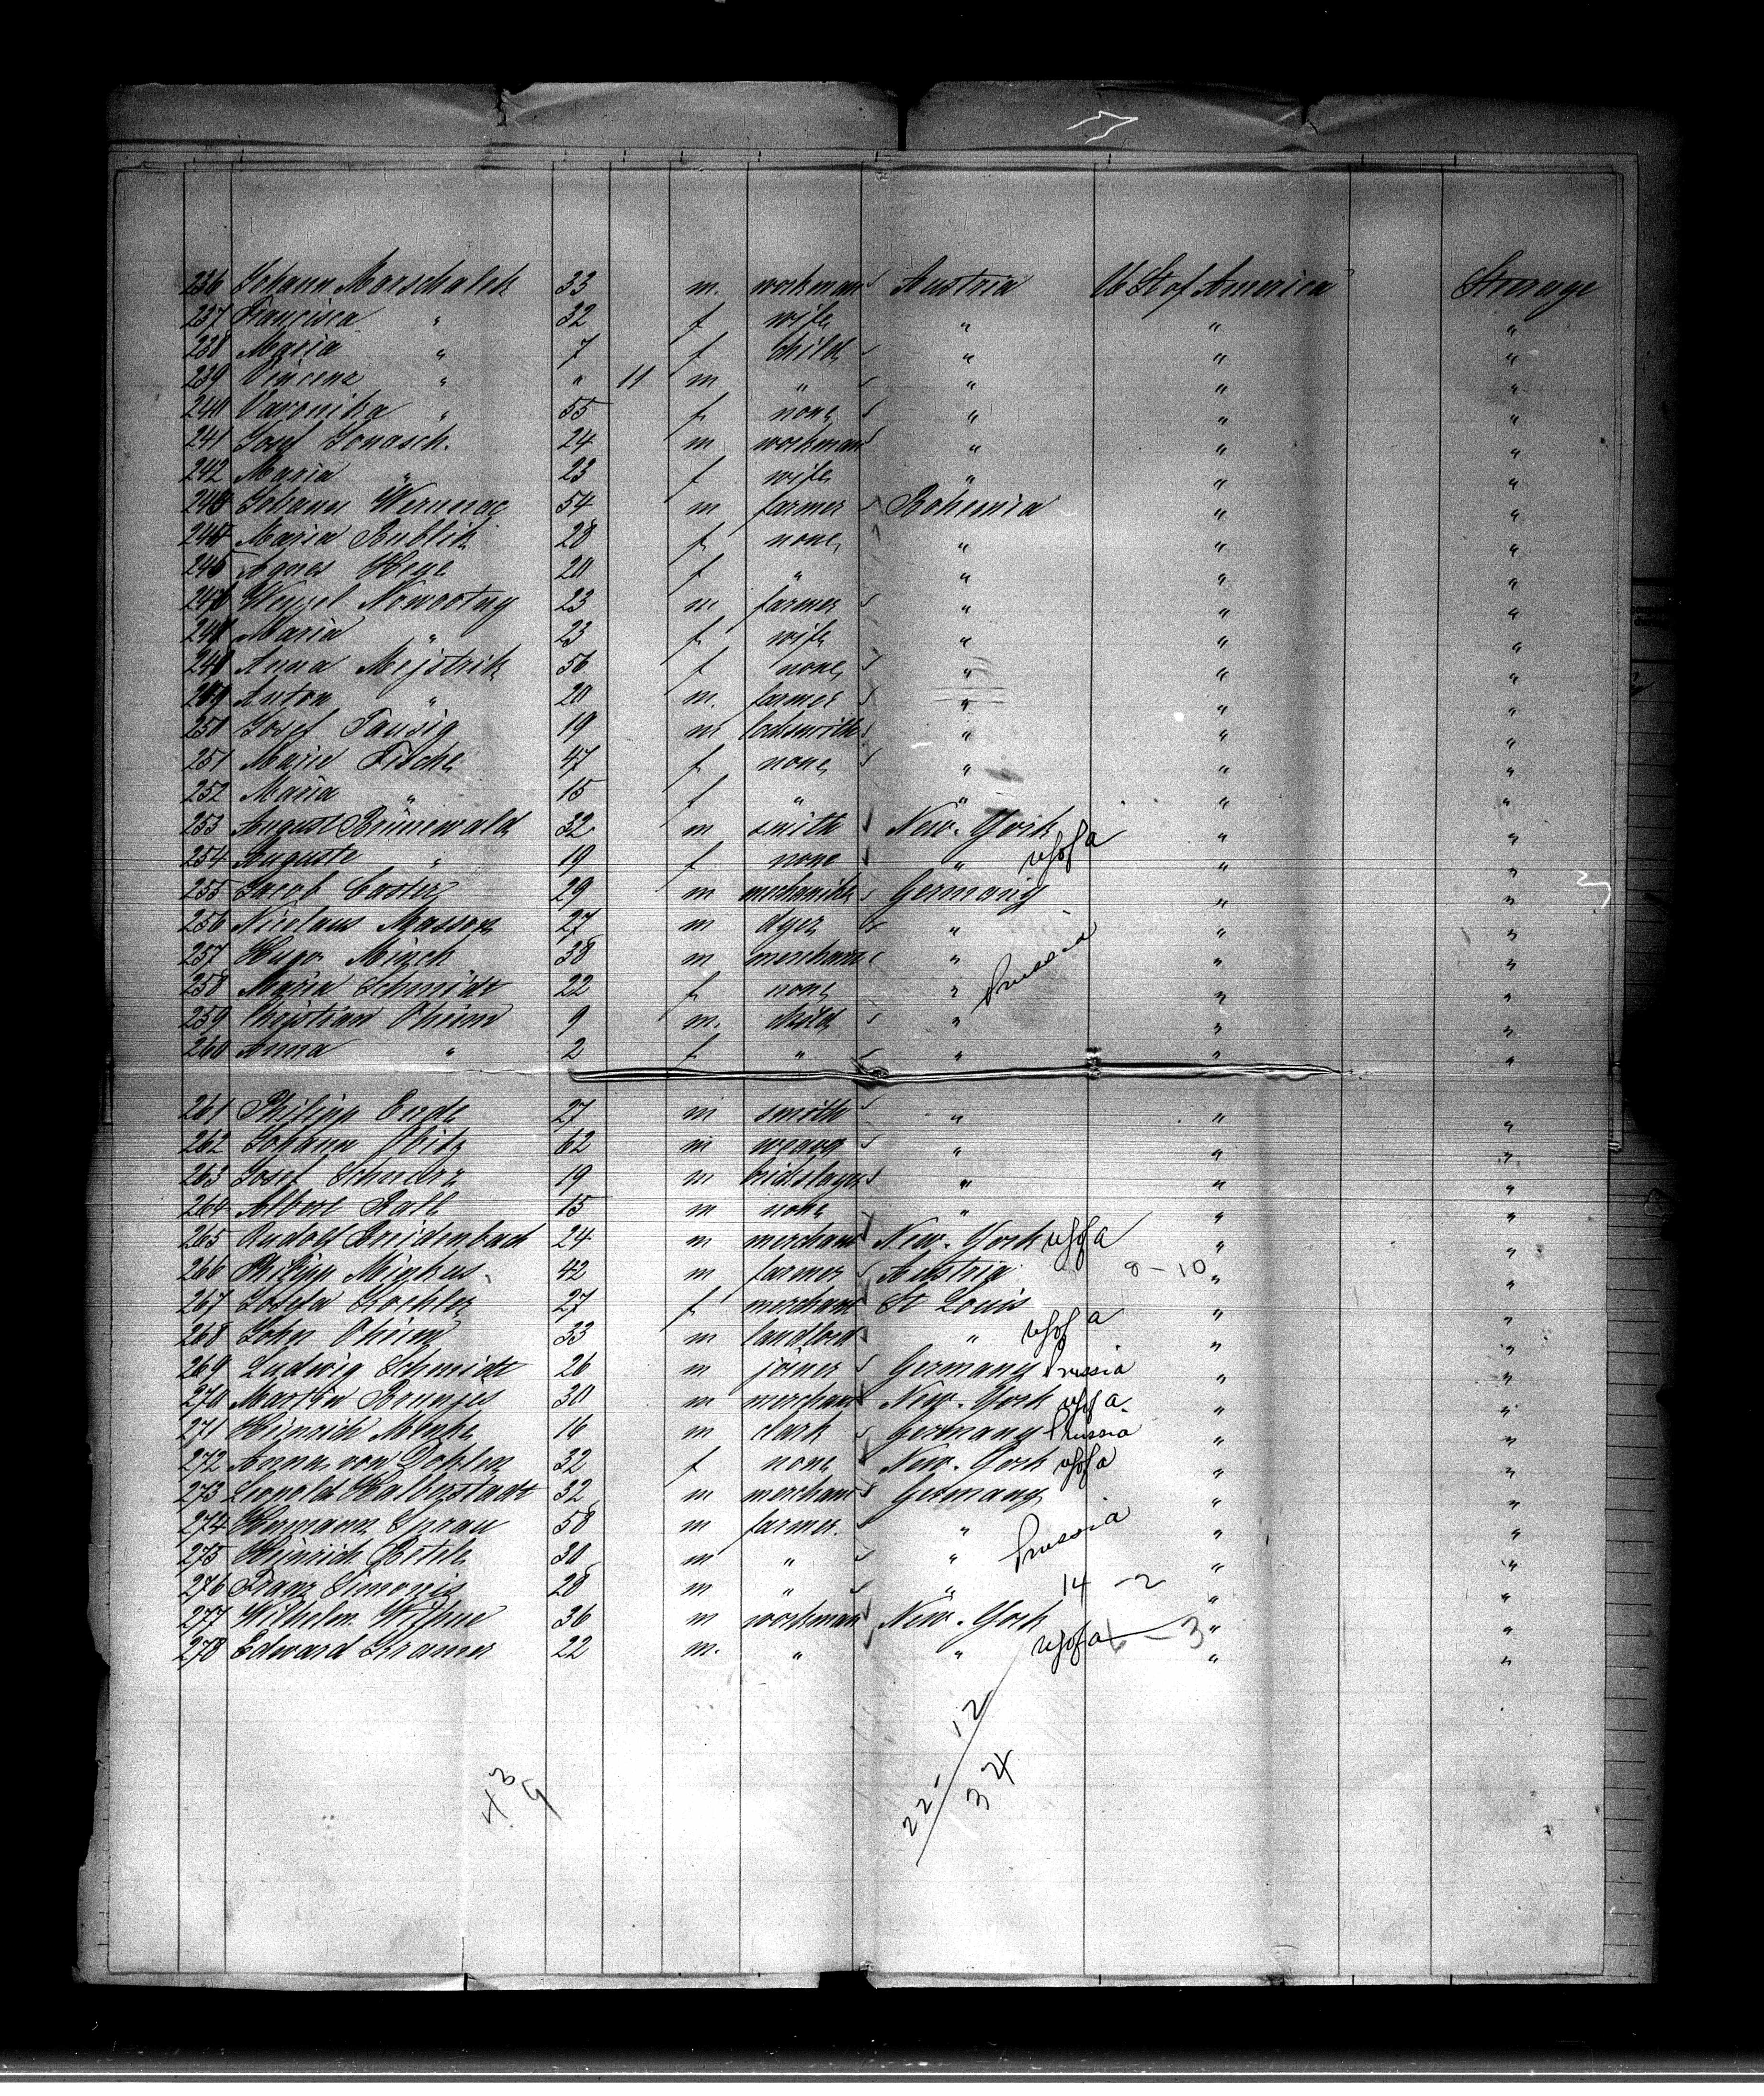 236 Johann Marschalek 33 m. workman Austria U St of America Steerage
237 Francisca " 32 f wife " " "
238 Maria " 7 f child " " "
239 Vincenz " " 11 m " " " "
240 Varonika " 55 f none " " "
241 Josef Jonasch. 24 m workman " " "
242 Maria " 23 f wife " " "
243 Johann 54 m farmer Bohemia " "
244 Maria Bublik 28 f none " " "
245 Agnes Hege 20 f " " " "
246 Wenzel Nowootny 23 m farmer " " "
247 Maria " 23 f wife " " "
248 Anna Mejstrik 56 f none " " "
249 Anton " 20 m. farmer " " "
250 Josef Taussig 19 m locksmith " " "
251 Maria Fische 47 f none " " "
252 Maria " 15 f " " " "
253 August Brünewald 32 m smith New-York " "
254 Auguste " 19 f none " USofA " "
255 Jacob Caster 29 m mechaniker Germany " "
256 Nicolaus Massop 27 m dyer " " "
257 Hugo Minck 38 m merchant " " "
258 Maria Schmidt 22 f none " Prussia " "
259 Christian Ohrem 9 m. child " " "
260 Anna " 2 f " " " "
261 Philipp Ende 27 m smith " " "
262 Johann 62 m " " "
263 Josef Schwarz 19 m bricklayer " " "
264 Albert Rall 15 m none " " "
265 Rudolf Breidenbach 24 m merchant New-York USofA " "
266 Philipp Minkus 42 m farmer Austria 8-10 " "
267 Josefa Koehler 27 f merchant St Louis " "
268 John Ohrem 33 m landlord " USofA " "
269 Ludwig Schmidt 26 m joiner Germany Prussia " "
270 Martin Brunjes 30 m merchant New-York USofA. " "
271 Heinrich Menke 16 m clark Germany Prussia " "
272 Anna von Dohlen 32 f none New-York USofA " "
273 Leopold Halberstadt 32 m merchant Germany " "
274 Hermann Sprau 58 m farmer. " Prussia " "
275 Heinrich 30 m " " " "
276 Franz Simonis 28 m " " 14-2 " "
277 Wilhelm 36 m workman New-York " "
278 Edward Kramer 22 m. " " USofA 6-3 " "
22 / 12
34
439